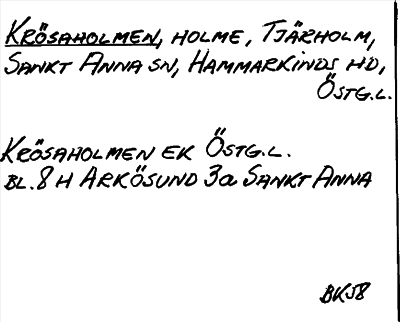 KRÖSAHOLMEN, HOLME, TJÄRHOLM,
SANKT ANNA SN, HAMMARKINDS HD,
ÖSTG.L.
KRÖSAHOLMEN EK ÖSTG.L.
BL. 8 H ARKÖSUND 3a SANKT ANNA
BKJ8